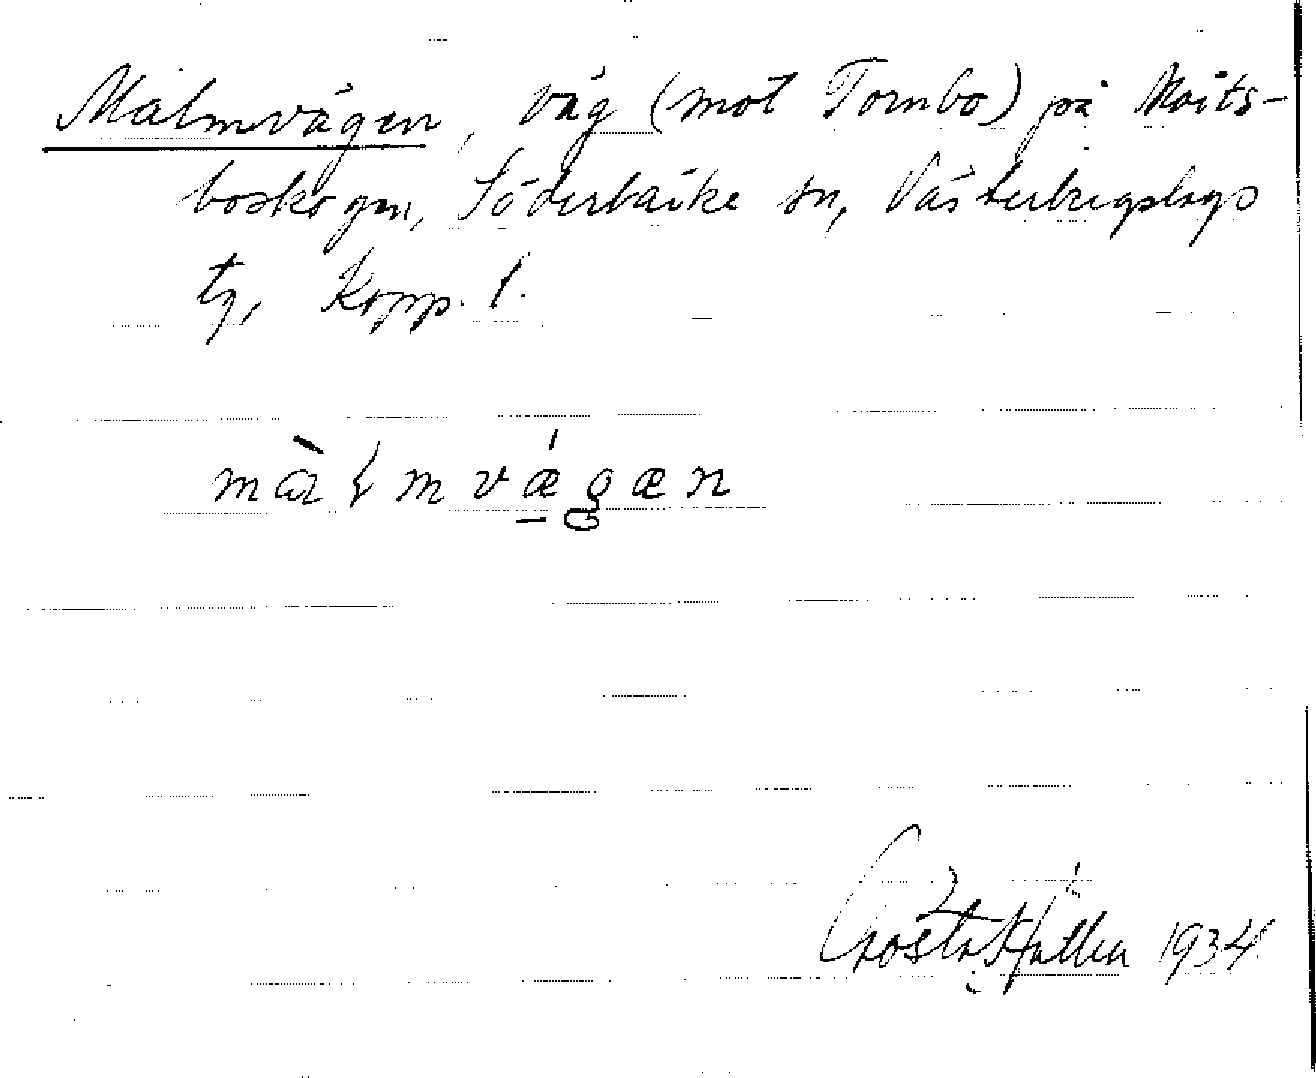 Malmvägen, väg (mot Tombo) på Moits-
boskogen, Söderbärke sn, Västerbergslags
tg, Kopp. l.
màɽmvǽgæn
Gösta 1934